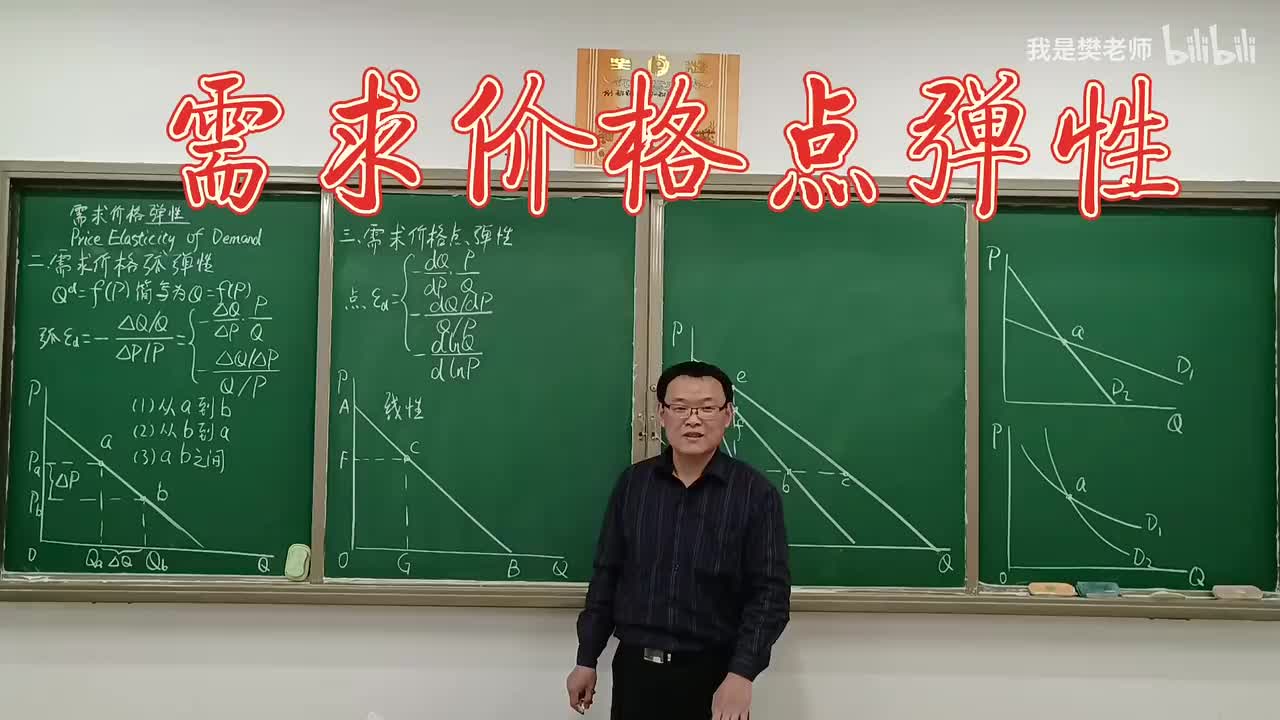 我是樊老师 bilibili
需求价格点弹性
需求价格弹性
Price Elasticity of Demand
二.需求价格弧弹性
Q^d=f(P) 简写为Q=f(P)
弧 ε_d = - (ΔQ/Q)/(ΔP/P) = { -ΔQ/ΔP · P/Q
- (ΔQ/ΔP)/(Q/P)
(1)从a到b
(2)从b到a
(3)a b之间
P
a
P_a
ΔP
P_b
b
O Q_a ΔQ Q_b Q
三.需求价格点弹性
点 ε_d = { -dQ/dP · P/Q
- (dQ/dP)/(Q/P)
- dlnQ/dlnP
P
A 线性
F C
O G B Q
P
e
f
b c
Q
P
a
D₁
D₂
Q
P
a
D₁
D₂
O Q